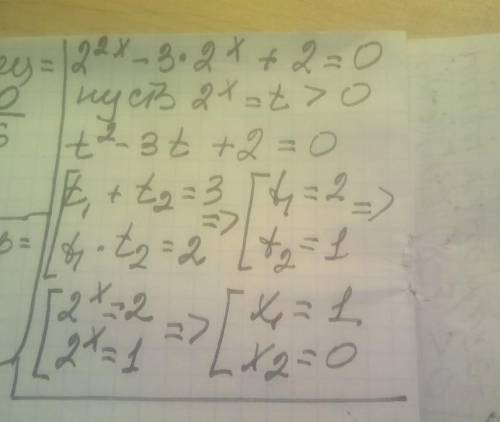 ey=
0
5
2^{2x} - 3 · 2^x + 2 = 0
пусть 2^x = t > 0
t^2 - 3t + 2 = 0
[ t_1 + t_2 = 3 => [ t_1 = 2 =>
[ t_1 · t_2 = 2 [ t_2 = 1
[ 2^x = 2 => [ x_1 = 1
[ 2^x = 1 [ x_2 = 0